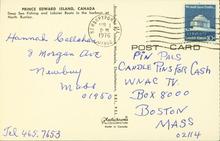 PRINCE EDWARD ISLAND, CANADA
Deep Sea Fishing and Lobster Boats in the harbour, at
North Rustico.
Hannah Callahan
8 Morgan Ave
Newbury
Mass
01950
Tel 465.7653
1976
POST CARD
PIN PALS
CANDLE PINS FOR CASH
WNAC TV
BOX 8000
BOSTON
MASS
02114